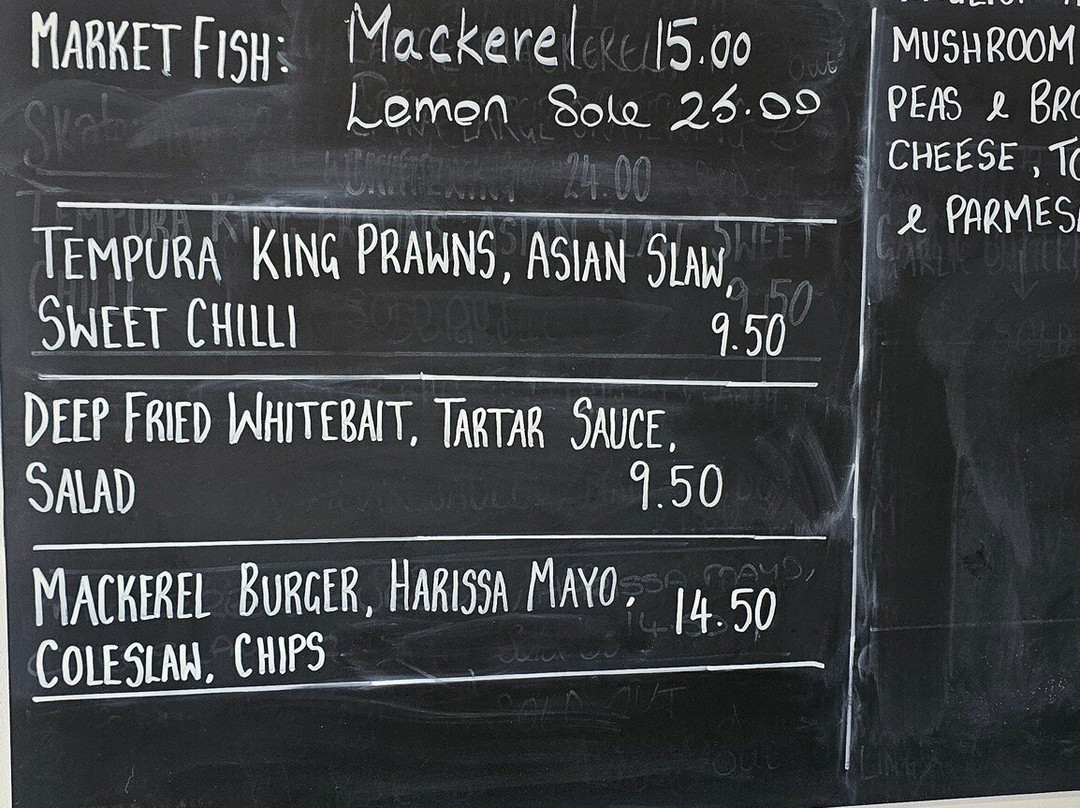 MARKET FISH: Mackerel 15.00
Lemon Sole 25.00
24.00
TEMPURA KING PRAWNS, ASIAN SLAW,
SWEET CHILLI 9.50
DEEP FRIED WHITEBAIT, TARTAR SAUCE,
SALAD 9.50
MACKEREL BURGER, HARISSA MAYO, 14.50
COLESLAW, CHIPS
MUSHROOM
PEAS & BRO
CHEESE, TO
& PARMESA